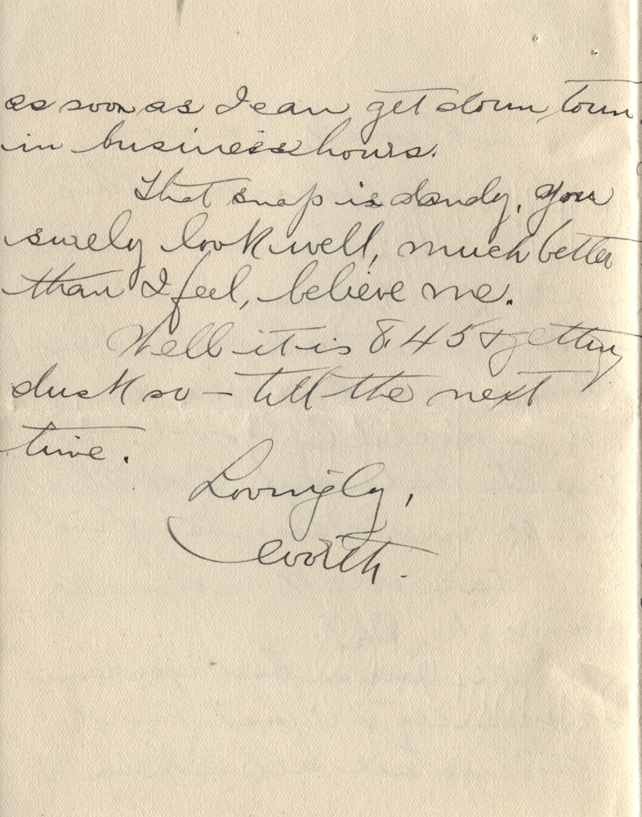 as soon as I can get down town
in business hours.
That snap is dandy, you
surely look well, much better
than I feel, believe me.
Well it is 8.45 & getting
dusk so – till the next
time.
Lovingly,
Worth.